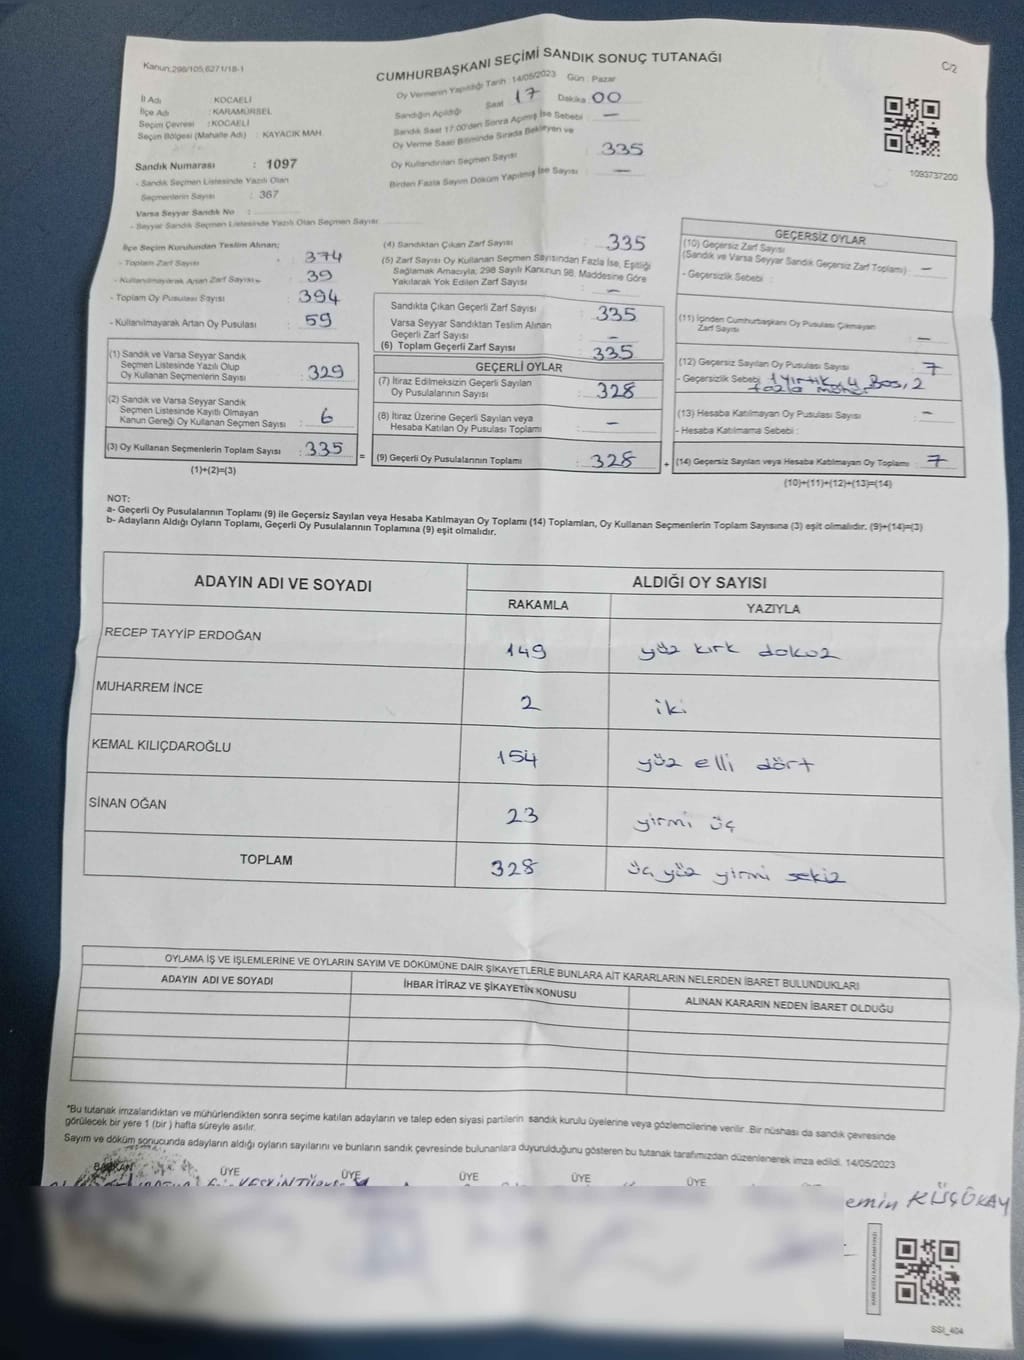 Kanun:298/105,6271/18-1
CUMHURBAŞKANI SEÇİMİ SANDIK SONUÇ TUTANAĞI
C/2
Oy Vermenin Yapıldığı Tarih :14/05/2023 Gün : Pazar
İl Adı : KOCAELİ
İlçe Adı : KARAMÜRSEL
Seçim Çevresi : KOCAELİ
Seçim Bölgesi (Mahalle Adı) : KAYACIK MAH.
Sandık Numarası : 1097
- Sandık Seçmen Listesinde Yazılı Olan
Seçmenlerin Sayısı : 367
Varsa Seyyar Sandık No :
- Seyyar Sandık Seçmen Listesinde Yazılı Olan Seçmen Sayısı:
Sandığın Açıldığı Saat 17 Dakika 00
Sandık Saat 17:00'den Sonra Açımış İse Sebebi : —
Oy Verme Saati Bitiminde Sırada Bekleyen ve
Oy Kullandırılan Seçmen Sayısı : 335
Birden Fazla Sayım Döküm Yapılmış İse Sayısı : —
1093737200
İlçe Seçim Kurulundan Teslim Alınan;
- Toplam Zarf Sayısı : 374
- Kullanılmayarak Artan Zarf Sayısı : 39
- Toplam Oy Pusulası Sayısı : 394
- Kullanılmayarak Artan Oy Pusulası : 59
(1) Sandık ve Varsa Seyyar Sandık
Seçmen Listesinde Yazılı Olup
Oy Kullanan Seçmenlerin Sayısı : 329
(2) Sandık ve Varsa Seyyar Sandık
Seçmen Listesinde Kayıtlı Olmayan
Kanun Gereği Oy Kullanan Seçmen Sayısı : 6
(3) Oy Kullanan Seçmenlerin Toplam Sayısı : 335
(1)+(2)=(3)
=
(4) Sandıktan Çıkan Zarf Sayısı : 335
(5) Zarf Sayısı Oy Kullanan Seçmen Sayısından Fazla İse, Eşitliği
Sağlamak Amacıyla; 298 Sayılı Kanunun 98. Maddesine Göre
Yakılarak Yok Edilen Zarf Sayısı : —
Sandıkta Çıkan Geçerli Zarf Sayısı : 335
Varsa Seyyar Sandıktan Teslim Alınan
Geçerli Zarf Sayısı : —
(6) Toplam Geçerli Zarf Sayısı : 335
GEÇERLİ OYLAR
(7) İtiraz Edilmeksizin Geçerli Sayılan
Oy Pusulalarının Sayısı : 328
(8) İtiraz Üzerine Geçerli Sayılan veya
Hesaba Katılan Oy Pusulası Toplamı : —
(9) Geçerli Oy Pusulalarının Toplamı : 328
+
GEÇERSİZ OYLAR
(10) Geçersiz Zarf Sayısı
(Sandık ve Varsa Seyyar Sandık Geçersiz Zarf Toplamı) : —
- Geçersizlik Sebebi :
(11) İçinden Cumhurbaşkanı Oy Pusulası Çıkmayan
Zarf Sayısı : —
(12) Geçersiz Sayılan Oy Pusulası Sayısı : 7
- Geçersizlik Sebebi 1 Yırtık, 4 Boş, 2
fazla mühür
(13) Hesaba Katılmayan Oy Pusulası Sayısı : —
- Hesaba Katılmama Sebebi :
(14) Geçersiz Sayılan veya Hesaba Katılmayan Oy Toplamı : 7
(10)+(11)+(12)+(13)=(14)
NOT:
a- Geçerli Oy Pusulalarının Toplamı (9) ile Geçersiz Sayılan veya Hesaba Katılmayan Oy Toplamı (14) Toplamları, Oy Kullanan Seçmenlerin Toplam Sayısına (3) eşit olmalıdır. (9)+(14)=(3)
b- Adayların Aldığı Oyların Toplamı, Geçerli Oy Pusulalarının Toplamına (9) eşit olmalıdır.
ADAYIN ADI VE SOYADI
ALDIĞI OY SAYISI
RAKAMLA
YAZIYLA
RECEP TAYYİP ERDOĞAN 149 yüz kırk dokuz
MUHARREM İNCE 2 iki
KEMAL KILIÇDAROĞLU 154 yüz elli dört
SİNAN OĞAN 23 yirmi üç
TOPLAM 328 üç yüz yirmi sekiz
OYLAMA İŞ VE İŞLEMLERİNE VE OYLARIN SAYIM VE DÖKÜMÜNE DAİR ŞİKAYETLERLE BUNLARA AİT KARARLARIN NELERDEN İBARET BULUNDUKLARI
ADAYIN ADI VE SOYADI
İHBAR İTİRAZ VE ŞİKAYETİN KONUSU
ALINAN KARARIN NEDEN İBARET OLDUĞU
*Bu tutanak imzalandıktan ve mühürlendikten sonra seçime katılan adayların ve talep eden siyasi partilerin sandık kurulu üyelerine veya gözlemcilerine verilir. Bir nüshası da sandık çevresinde
görülecek bir yere 1 (bir ) hafta süreyle asılır.
Sayım ve döküm sonucunda adayların aldığı oyların sayılarını ve bunların sandık çevresinde bulunanlara duyurulduğunu gösteren bu tutanak tarafımızdan düzenlenerek imza edildi. 14/05/2023
BAŞKAN ÜYE ÜYE ÜYE ÜYE ÜYE
emin KÜÇÜKAY
SSI_404